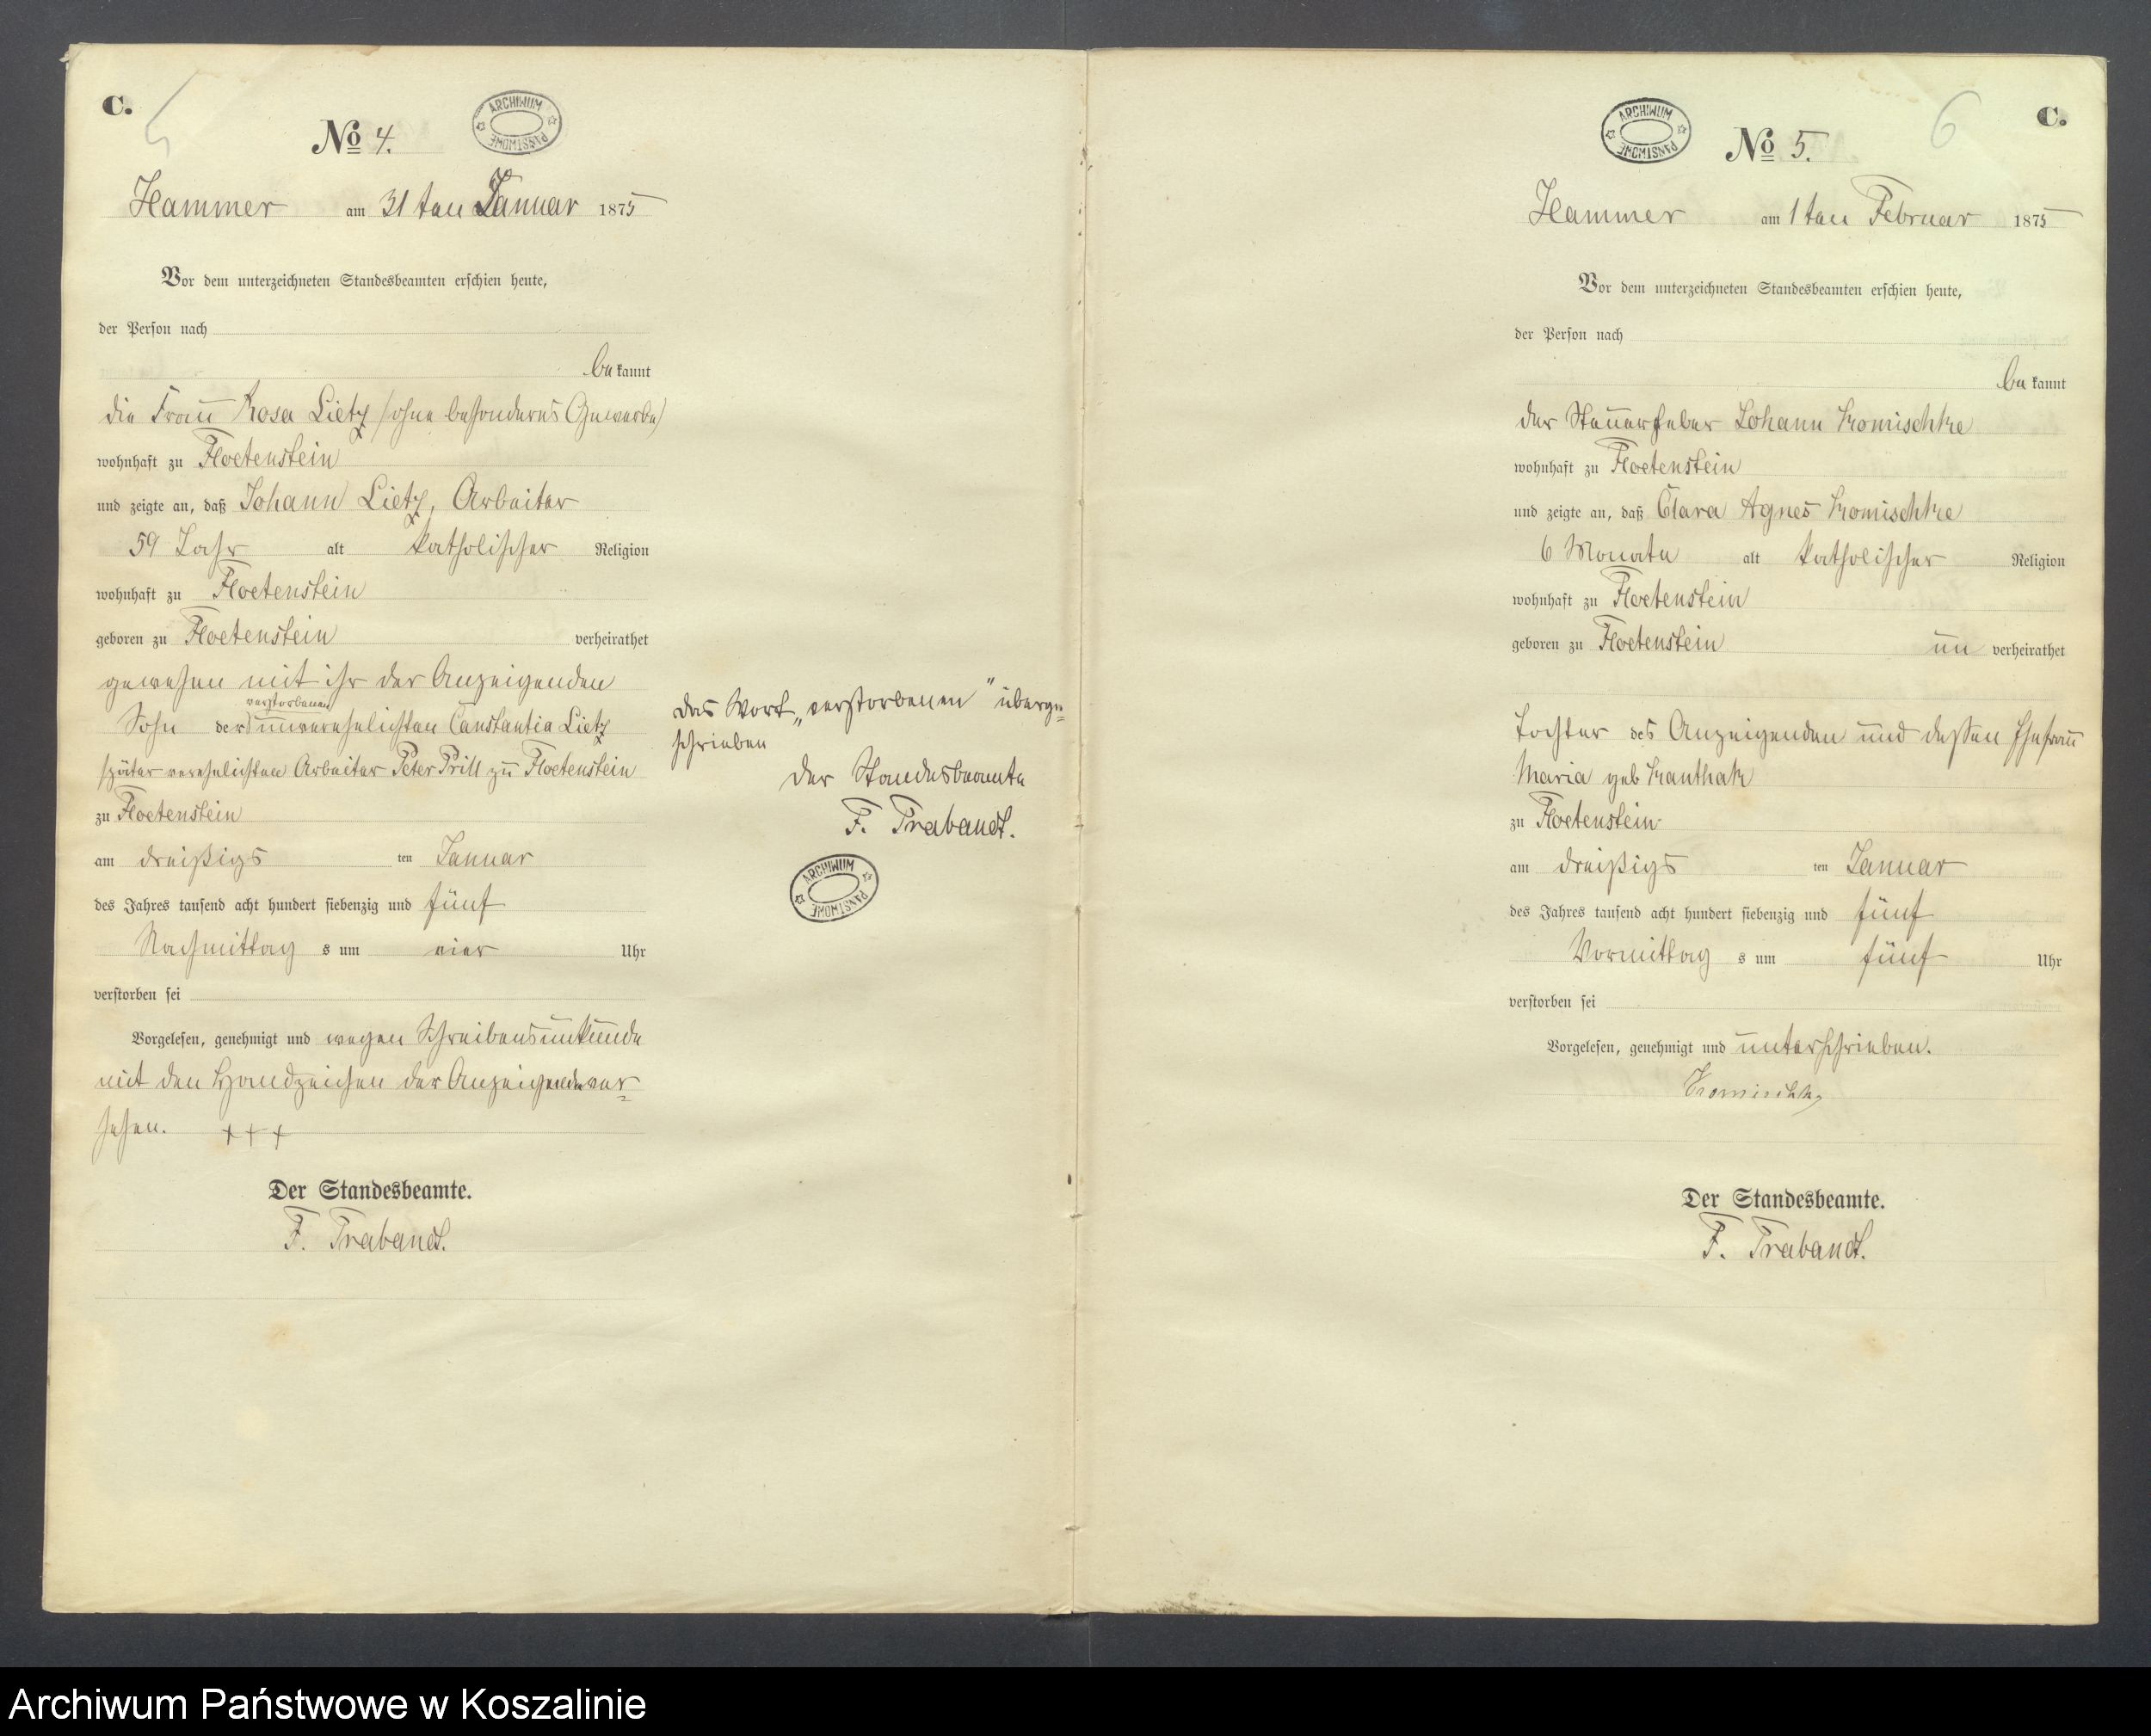 C.
5
ARCHIWUM PAŃSTWOWE
No 4.
Hammer am 31ten Januar 1875
Vor dem unterzeichneten Standesbeamten erschien heute,
der Person nach
bekannt
die Frau Rosa Lietz (ohne besonderes Gewerbe)
wohnhaft zu Floetenstein
und zeigte an, daß Johann Lietz, Arbeiter
59 Jahr alt katholischer Religion
wohnhaft zu Floetenstein
geboren zu Floetenstein verheirathet
gewesen mit ihr der Anzeigenden
verstorbenen
Sohn der unverehelichten Constantia Lietz
später verehelichten Arbeiter Peter Prill zu Floetenstein
zu Floetenstein
am dreißigs ten Januar
des Jahres tausend acht hundert siebenzig und fünf
Nachmittag s um vier Uhr
verstorben sei
Vorgelesen, genehmigt und wegen Schreibensunkunde
mit den Handzeichen der Anzeigenden ver=
sehen. +++
Der Standesbeamte.
F. Trabandt.
das Wort „verstorbenen" überge=
schrieben
Der Standesbeamte
F. Trabandt.
ARCHIWUM PAŃSTWOWE
6
C.
ARCHIWUM PAŃSTWOWE
No 5.
Hammer am 1ten Februar 1875
Vor dem unterzeichneten Standesbeamten erschien heute,
der Person nach
bekannt
der Steuerheber Johann Kromischke
wohnhaft zu Floetenstein
und zeigte an, daß Clara Agnes Kromischke
6 Monate alt katholischer Religion
wohnhaft zu Floetenstein
geboren zu Floetenstein un verheirathet
Tochter des Anzeigenden und dessen Ehefrau
Maria geb
zu Floetenstein
am dreißigs ten Januar
des Jahres tausend acht hundert siebenzig und fünf
Vormittag s um fünf Uhr
verstorben sei
Vorgelesen, genehmigt und unterschrieben.
Kromischke
Der Standesbeamte.
F. Trabandt.
Archiwum Państwowe w Koszalinie